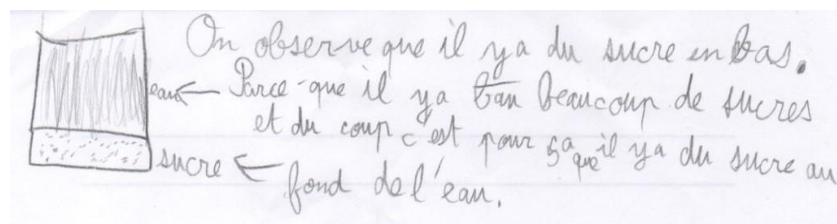 On observe que il ya du sucre en bas.
eau ← Parce-que il ya beaucoup de sucres
et du coup c'est pour sa que il ya du sucre au
sucre ← fond de l'eau.